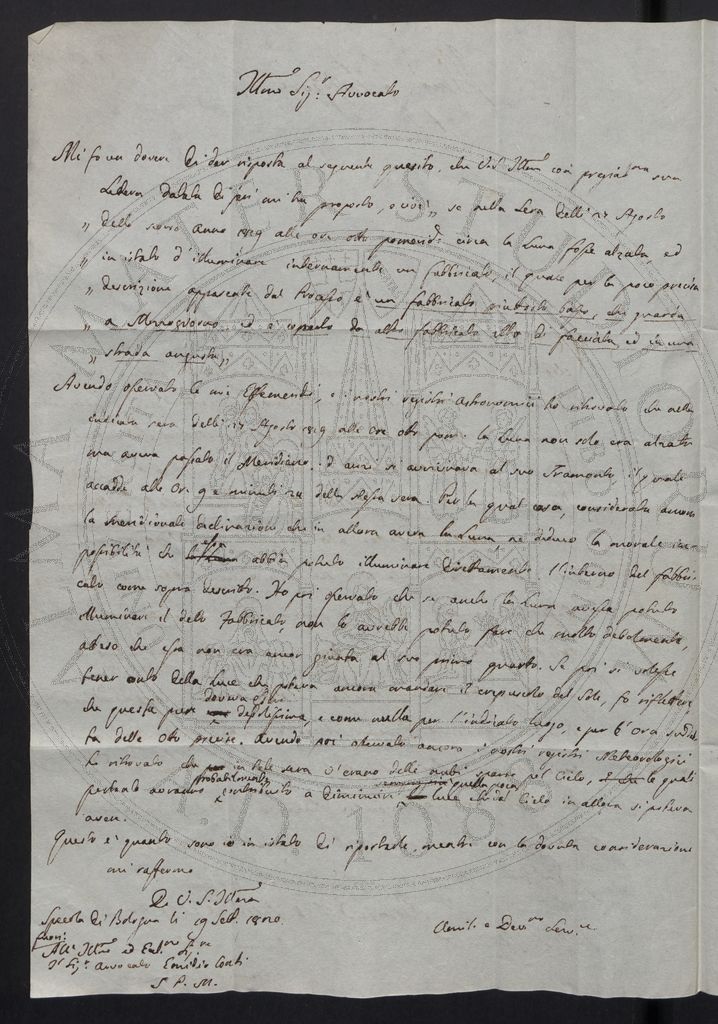 Ill.mo Sig.r Avvocato
Mi fo un dovere di dar risposta al seguente quesito, che V.S. Ill.ma con pregiat.ma sua
Lettera datata di jeri mi ha proposto, e cioè „ se nella sera delli 27 Agosto
„ dello scorso anno 1819 alle ore otto pomerid.e circa la Luna fosse alzata, ed
„ in istato d'illuminare internamente un fabbricato, il quale per la poco precisa
„ descrizione apparente dal Processo, è un fabbricato piuttosto basso, che guarda
„ a Mezzogiorno, ed è coperto da altro fabbricato alto di facciata, ed in una
„ strada angusta „
Avendo osservato le mie Effemeridi, e i nostri registri Astronomici ho ritrovato che nella
indicata sera delli 27 Agosto 1819 alle Ore otto pom. la Luna non solo era alzata
ma aveva passato il Meridiano, d'anzi si avvicinava al suo Tramonto il quale
accadde alle Or. 9 e minuti 24 della stessa sera. Per la qual cosa, considerata ancora
la meridionale declinazione che in allora aveva la Luna, ne deduco la morale im-
possibilità che essa abbia potuto illuminare direttamente l'interno del fabbri-
cato come sopra descritto. Ho poi osservato che se anche la Luna avesse potuto
illuminare il detto Fabbricato, non lo avrebbe potuto fare che molto debolmente,
atteso che essa non era ancor giunta al suo primo quarto. Se poi si volesse
tener conto della Luce che poteva ancora mandare il crepuscolo del Sole, fo riflettere
che questa pure doveva essere debolissima, e come nulla per l'indicato luogo, e per l'ora sud.a
delle otto precise. Avendo poi osservato ancora i nostri registri Meteorologici
ho ritrovato che in tale sera v'erano delle nubi sparse pel Cielo, le quali
pertanto avranno probabilmente contribuito a diminuire sempre più quella poca luce che dal Cielo in allora si poteva
avere.
Questo è quanto sono io in istato di riportarle, mentre con la dovuta considerazione
mi raffermo
Di V. S. Ill.ma
Specola di Bologna li 19 Sett. 1820.
Umil.o e Dev.mo Serv.re
fuori:
All' Ill.mo ed Ecc.mo Sig.re
Il Sig.r Avvocato Emidio Conti
S. P. M.
ALMA MATER STUDIORUM
A.D. 1088